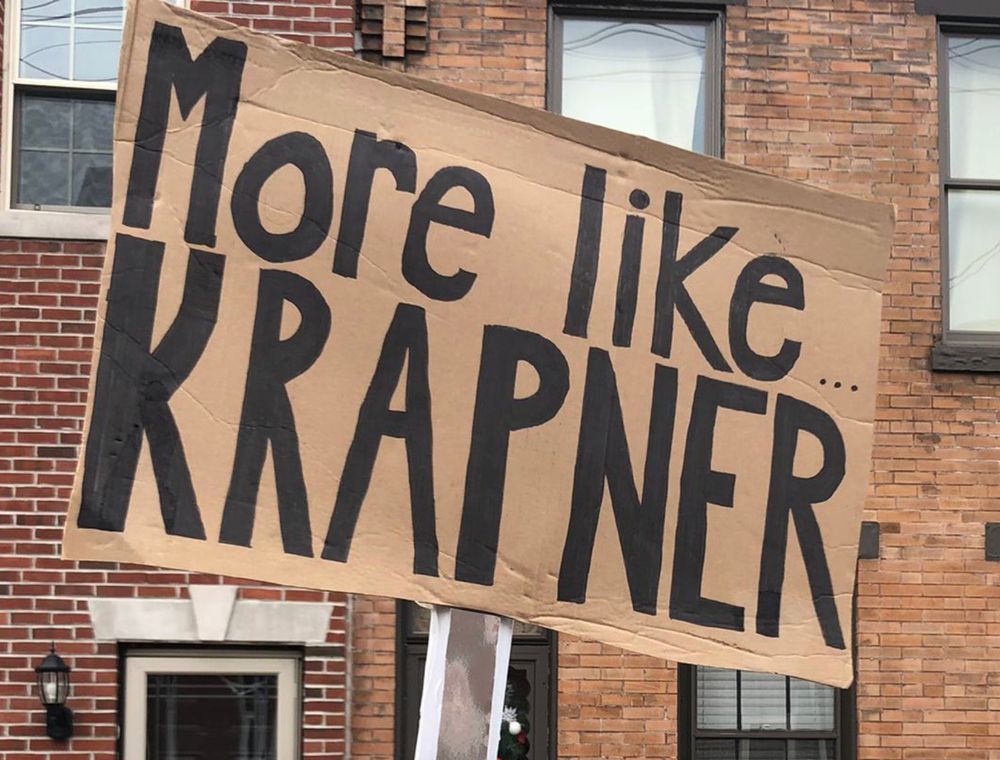 More like...
KRAPNER